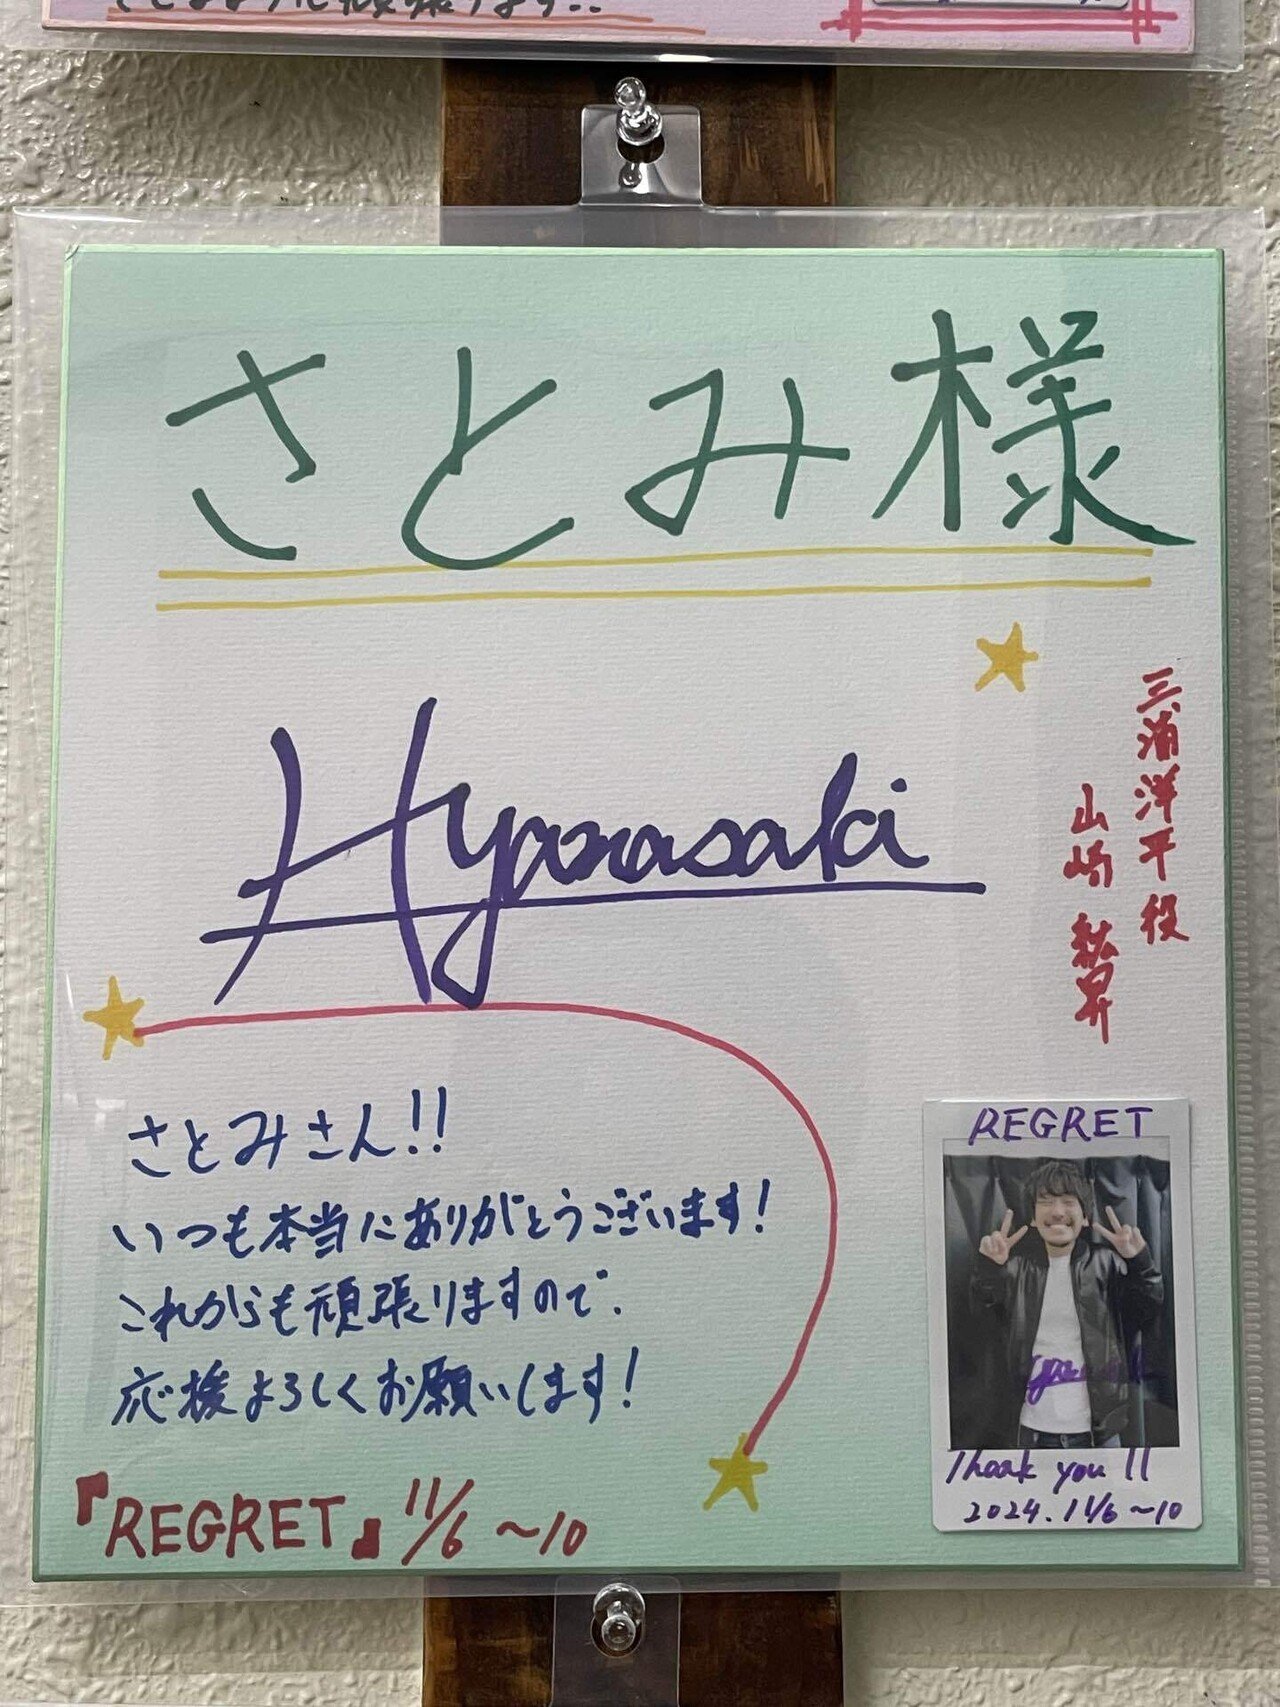 さとみ様
Hyamasaki
三浦洋平役
山崎 紘昇
さとみさん!!
いつも本当にありがとうございます!
これからも頑張りますので、
応援よろしくお願いします!
『REGRET』11/6～10
REGRET
Thank you!!
2024.11/6～10